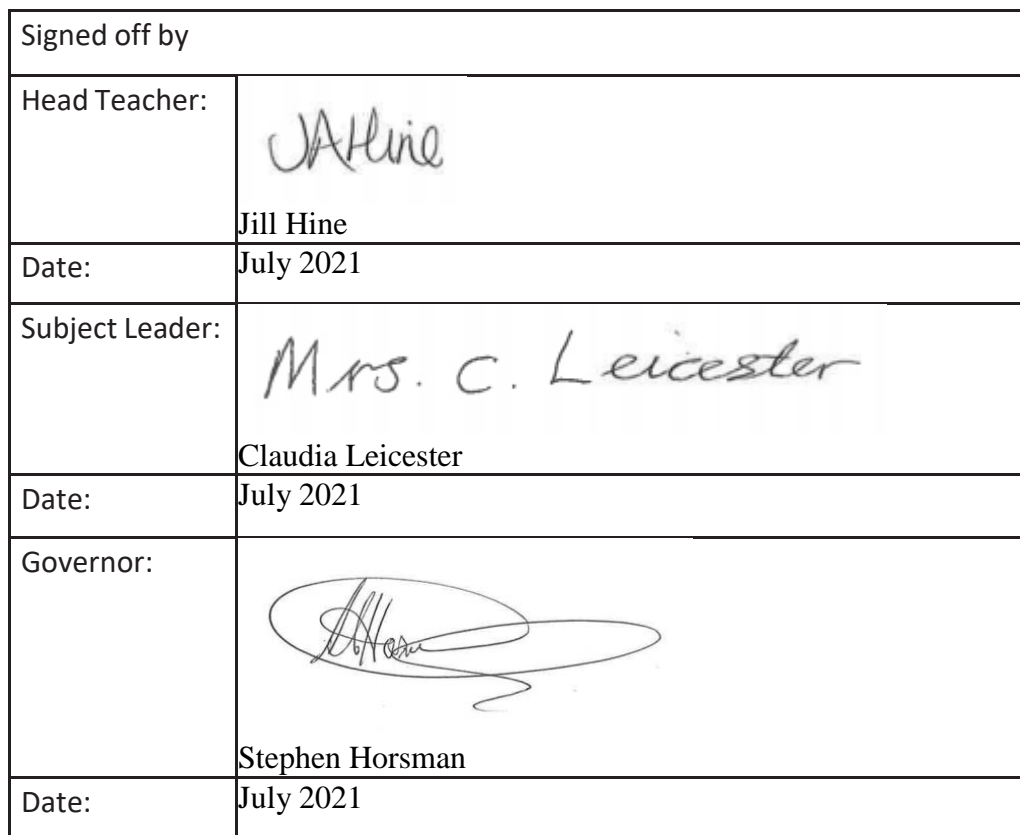 Signed off by
Head Teacher:
JAHine
Jill Hine
Date:
July 2021
Subject Leader:
Mrs. C. Leicester
Claudia Leicester
Date:
July 2021
Governor:
Stephen Horsman
Date:
July 2021